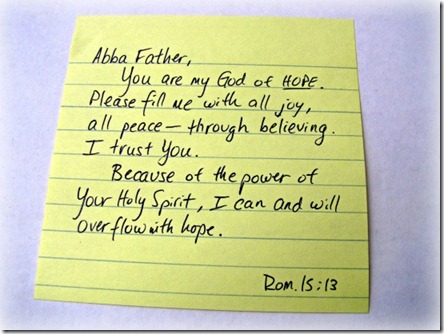 Abba Father,
You are my God of HOPE.
Please fill me with all joy,
all peace — through believing.
I trust You.
Because of the power of
Your Holy Spirit, I can and will
overflow with hope.
Rom. 15:13